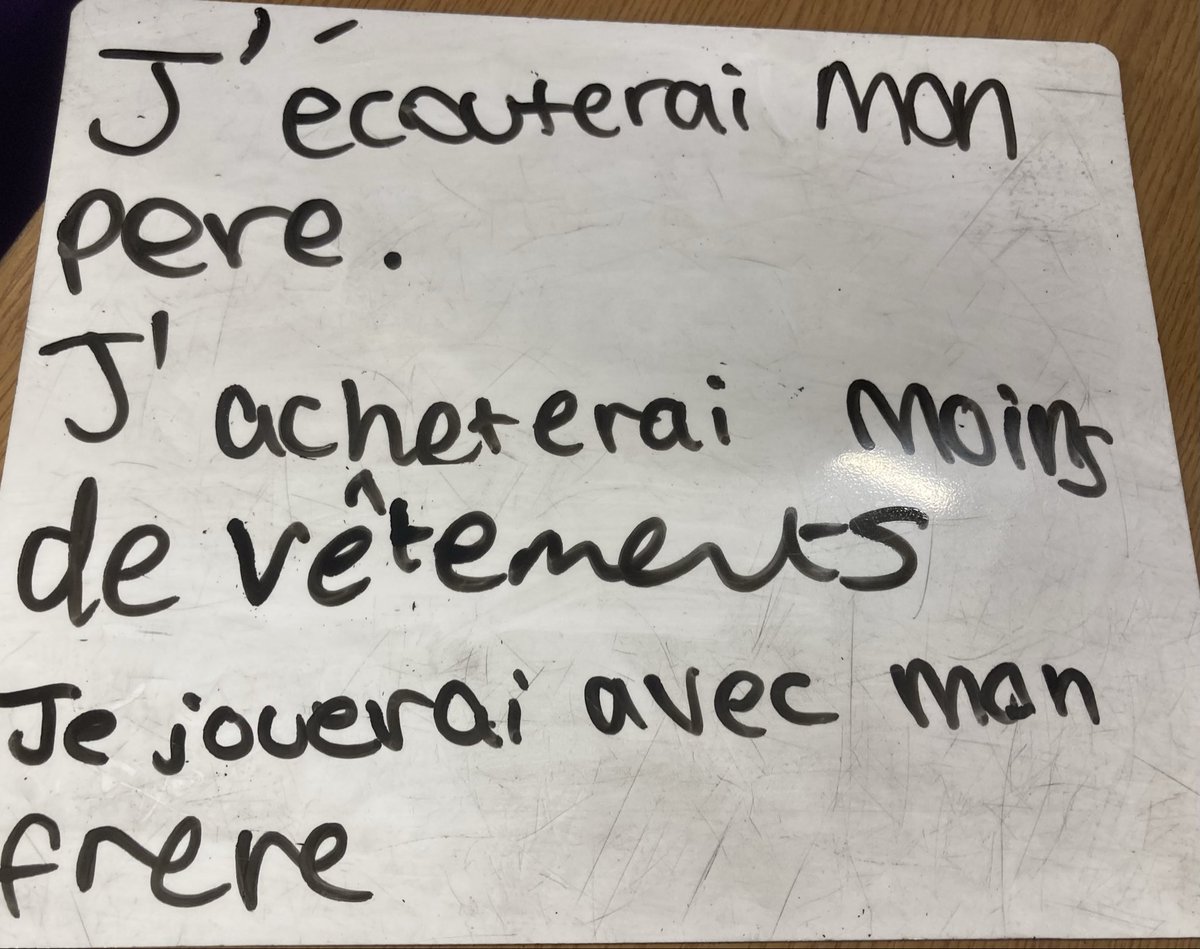 J'écouterai mon
pere.
J'acheterai moins
de vêtements
Je jouerai avec mon
frere